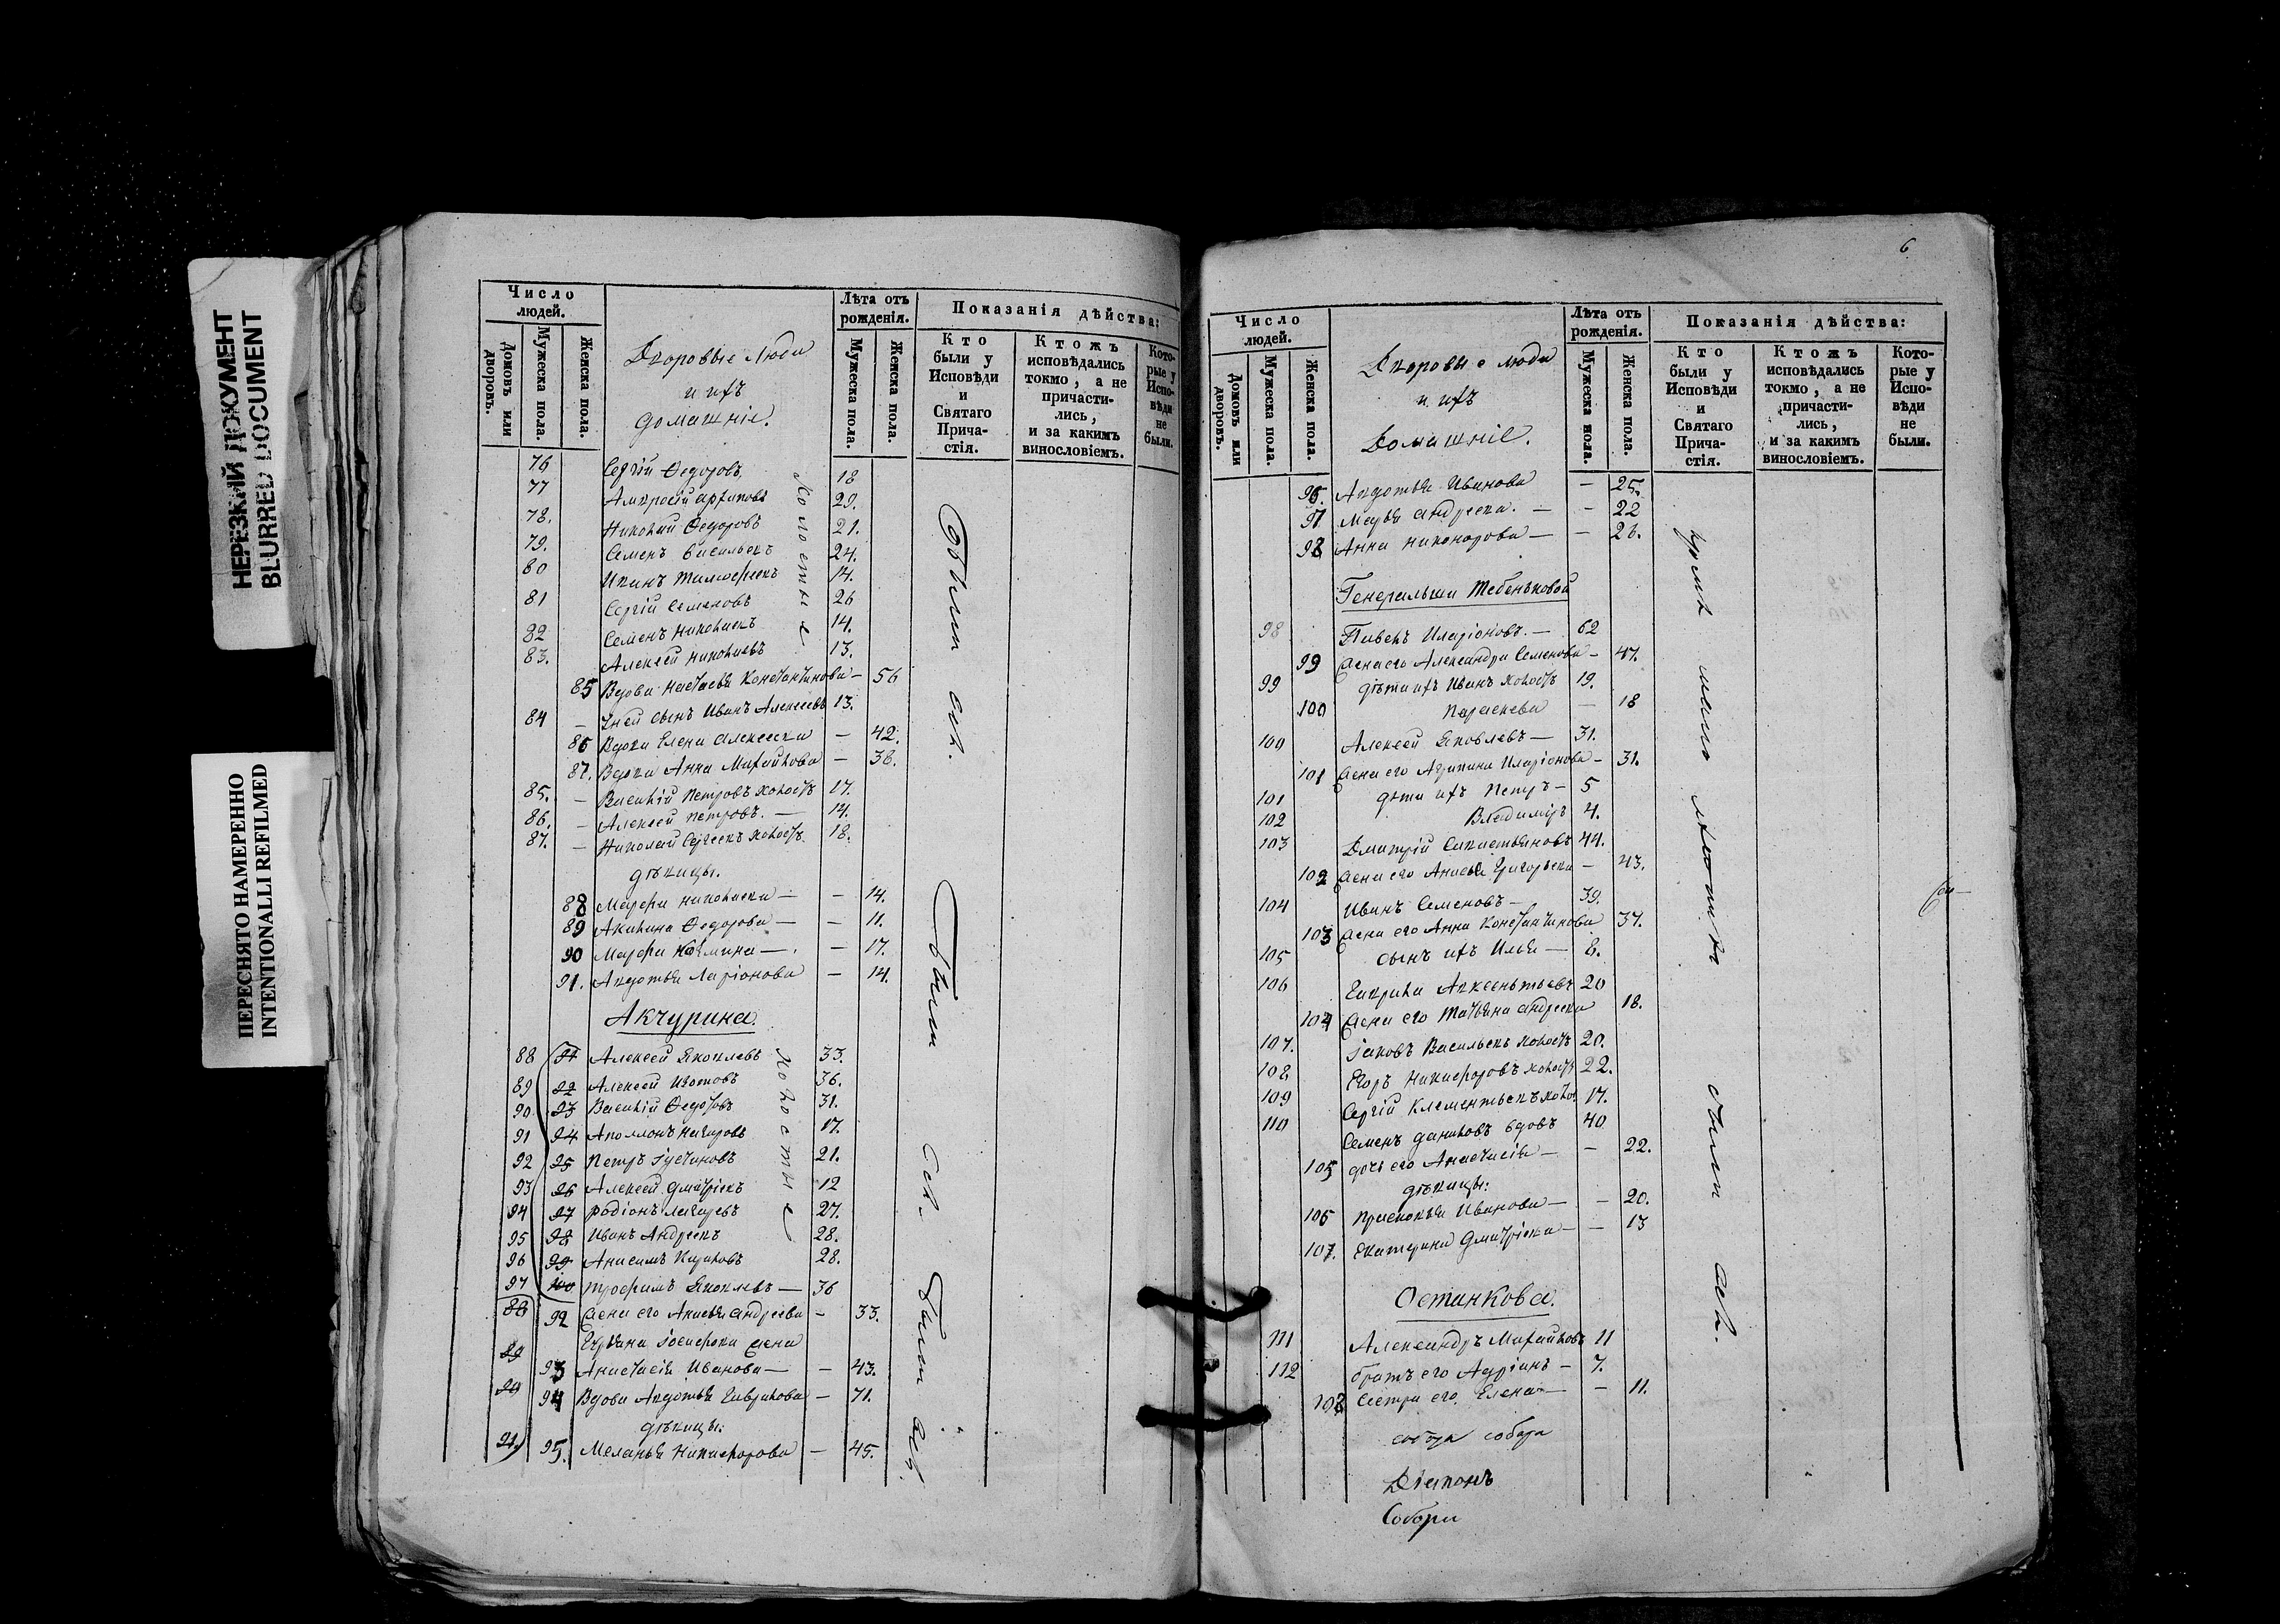 НЕРЕЗКИЙ ДОКУМЕНТ
BLURRED DOCUMENT
ПЕРЕСНЯТО НАМЕРЕННО
INTENTIONALLI REFILMED
Число людей.
Домовъ или дворовъ.
Мужеска пола.
Женска пола.
Дворовые люди
и ихъ
домашніе.
Лѣта отъ рожденія.
Мужеска пола.
Женска пола.
Показанія дѣйства:
Кто были у Исповѣди и Святаго Причастія.
Ктожъ исповѣдались токмо, а не причастились, и за какимъ винословіемъ.
Которые у Исповѣди не были.
76 Сергій Ѳедоровъ 18
77 29.
78. Николай Ѳедоровъ 21.
79. Семенъ Васильевъ 24.
80 Иванъ Тимоѳеевъ 14.
81 Сергій Семеновъ 26
82 Семенъ Николаевъ 14.
83. Алексѣй Николаевъ 13.
холостые
85 Вдова Настасья Константинова — 56
84 — У ней сынъ Иванъ Алексеевъ 13.
86 Вдова Елена Алексеева — 42.
87. Вдова Анна Михайлова — 38.
85. — Василій Петровъ холостъ 17.
86. — Алексей Петровъ. — 14.
87. — Николай Сергеевъ холостъ 18.
дѣвицы.
88 Марфа Николаева — — 14.
89 Акилина Ѳедорова — — 11.
90 Марфа — — 17.
91. Авдотья Ларіонова — 14.
Были
Были
Были
Акчурина.
88 Алексей Яковлевъ 33.
89 22 Алексей Изотовъ 36.
90 23 Василій Ѳедотовъ 31.
91 24 Аполлонъ Назаровъ 17.
92 25 Петръ Іустиновъ 21.
93 26 Алексей Дмитріевъ 12
94 27 Родіонъ Лазаревъ 27.
95 28 Иванъ Андреевъ 28.
96 29 Анисимъ Кириловъ 28.
97 100 Трофимъ Яковлевъ — 36
холостые
88 92 Жена его Анисья Андреева — 33.
89 Іосифова жена
93 Анастасія Иванова — — 43.
94 Вдова Авдотья Гаврилова — 71.
дѣвицы:
91 95. Меланья Никифорова — 45.
6
Число людей.
Домовъ или дворовъ.
Мужеска пола.
Женска пола.
Дворовые люди
и ихъ
Домашніе.
Лѣта отъ рожденія.
Мужеска пола.
Женска пола.
Показанія дѣйства:
Кто были у Исповѣди и Святаго Причастія.
Ктожъ исповѣдались токмо, а не причастились, и за какимъ винословіемъ.
Которые у Исповѣди не были.
96. Авдотья Иванова — 25.
97 Марья Андреева. — — 22
98 Анна Никонорова — — 26.
Генеральши Тебеньковой
98 Павелъ Иларіоновъ. — 62
99 Жена его Александра Семенова — 47.
99 дѣти ихъ Иванъ холостъ 19.
100 Параскева — 18
100 Алексей Яковлевъ — 31.
101 Жена его Агрипина Иларіонова — 31.
101 дѣти ихъ Петръ — 5
102 Владиміръ 4.
103 Дмитрій Савастьяновъ 44.
102 Жена его Анисья Григорьева — 43.
104 Иванъ Семеновъ — 39.
103 Жена его Анна Константинова 37.
105 сынъ ихъ Илья — 8.
106 Гаврила Авксентьевъ 20
104 Жена его Татьяна Андреева 18.
107. Іаковъ Васильевъ холостъ 20.
108 Егоръ Никифоровъ холостъ 22.
109 Сергій Клементьевъ холос. 17.
110 Семенъ Даниловъ вдовъ 40
105 дочь его Анастасія — — 22.
дѣвицы:
106 Прасковья Иванова — — 20.
107. Екатерина Дмитріева — — 13
кромѣ мало лѣтнихъ были
Останкова.
111 Александръ Михайловъ 11
112 братъ его Адріанъ — 7.
108 Сестра его Елена — — 11.
собора
Діаконъ
Собора